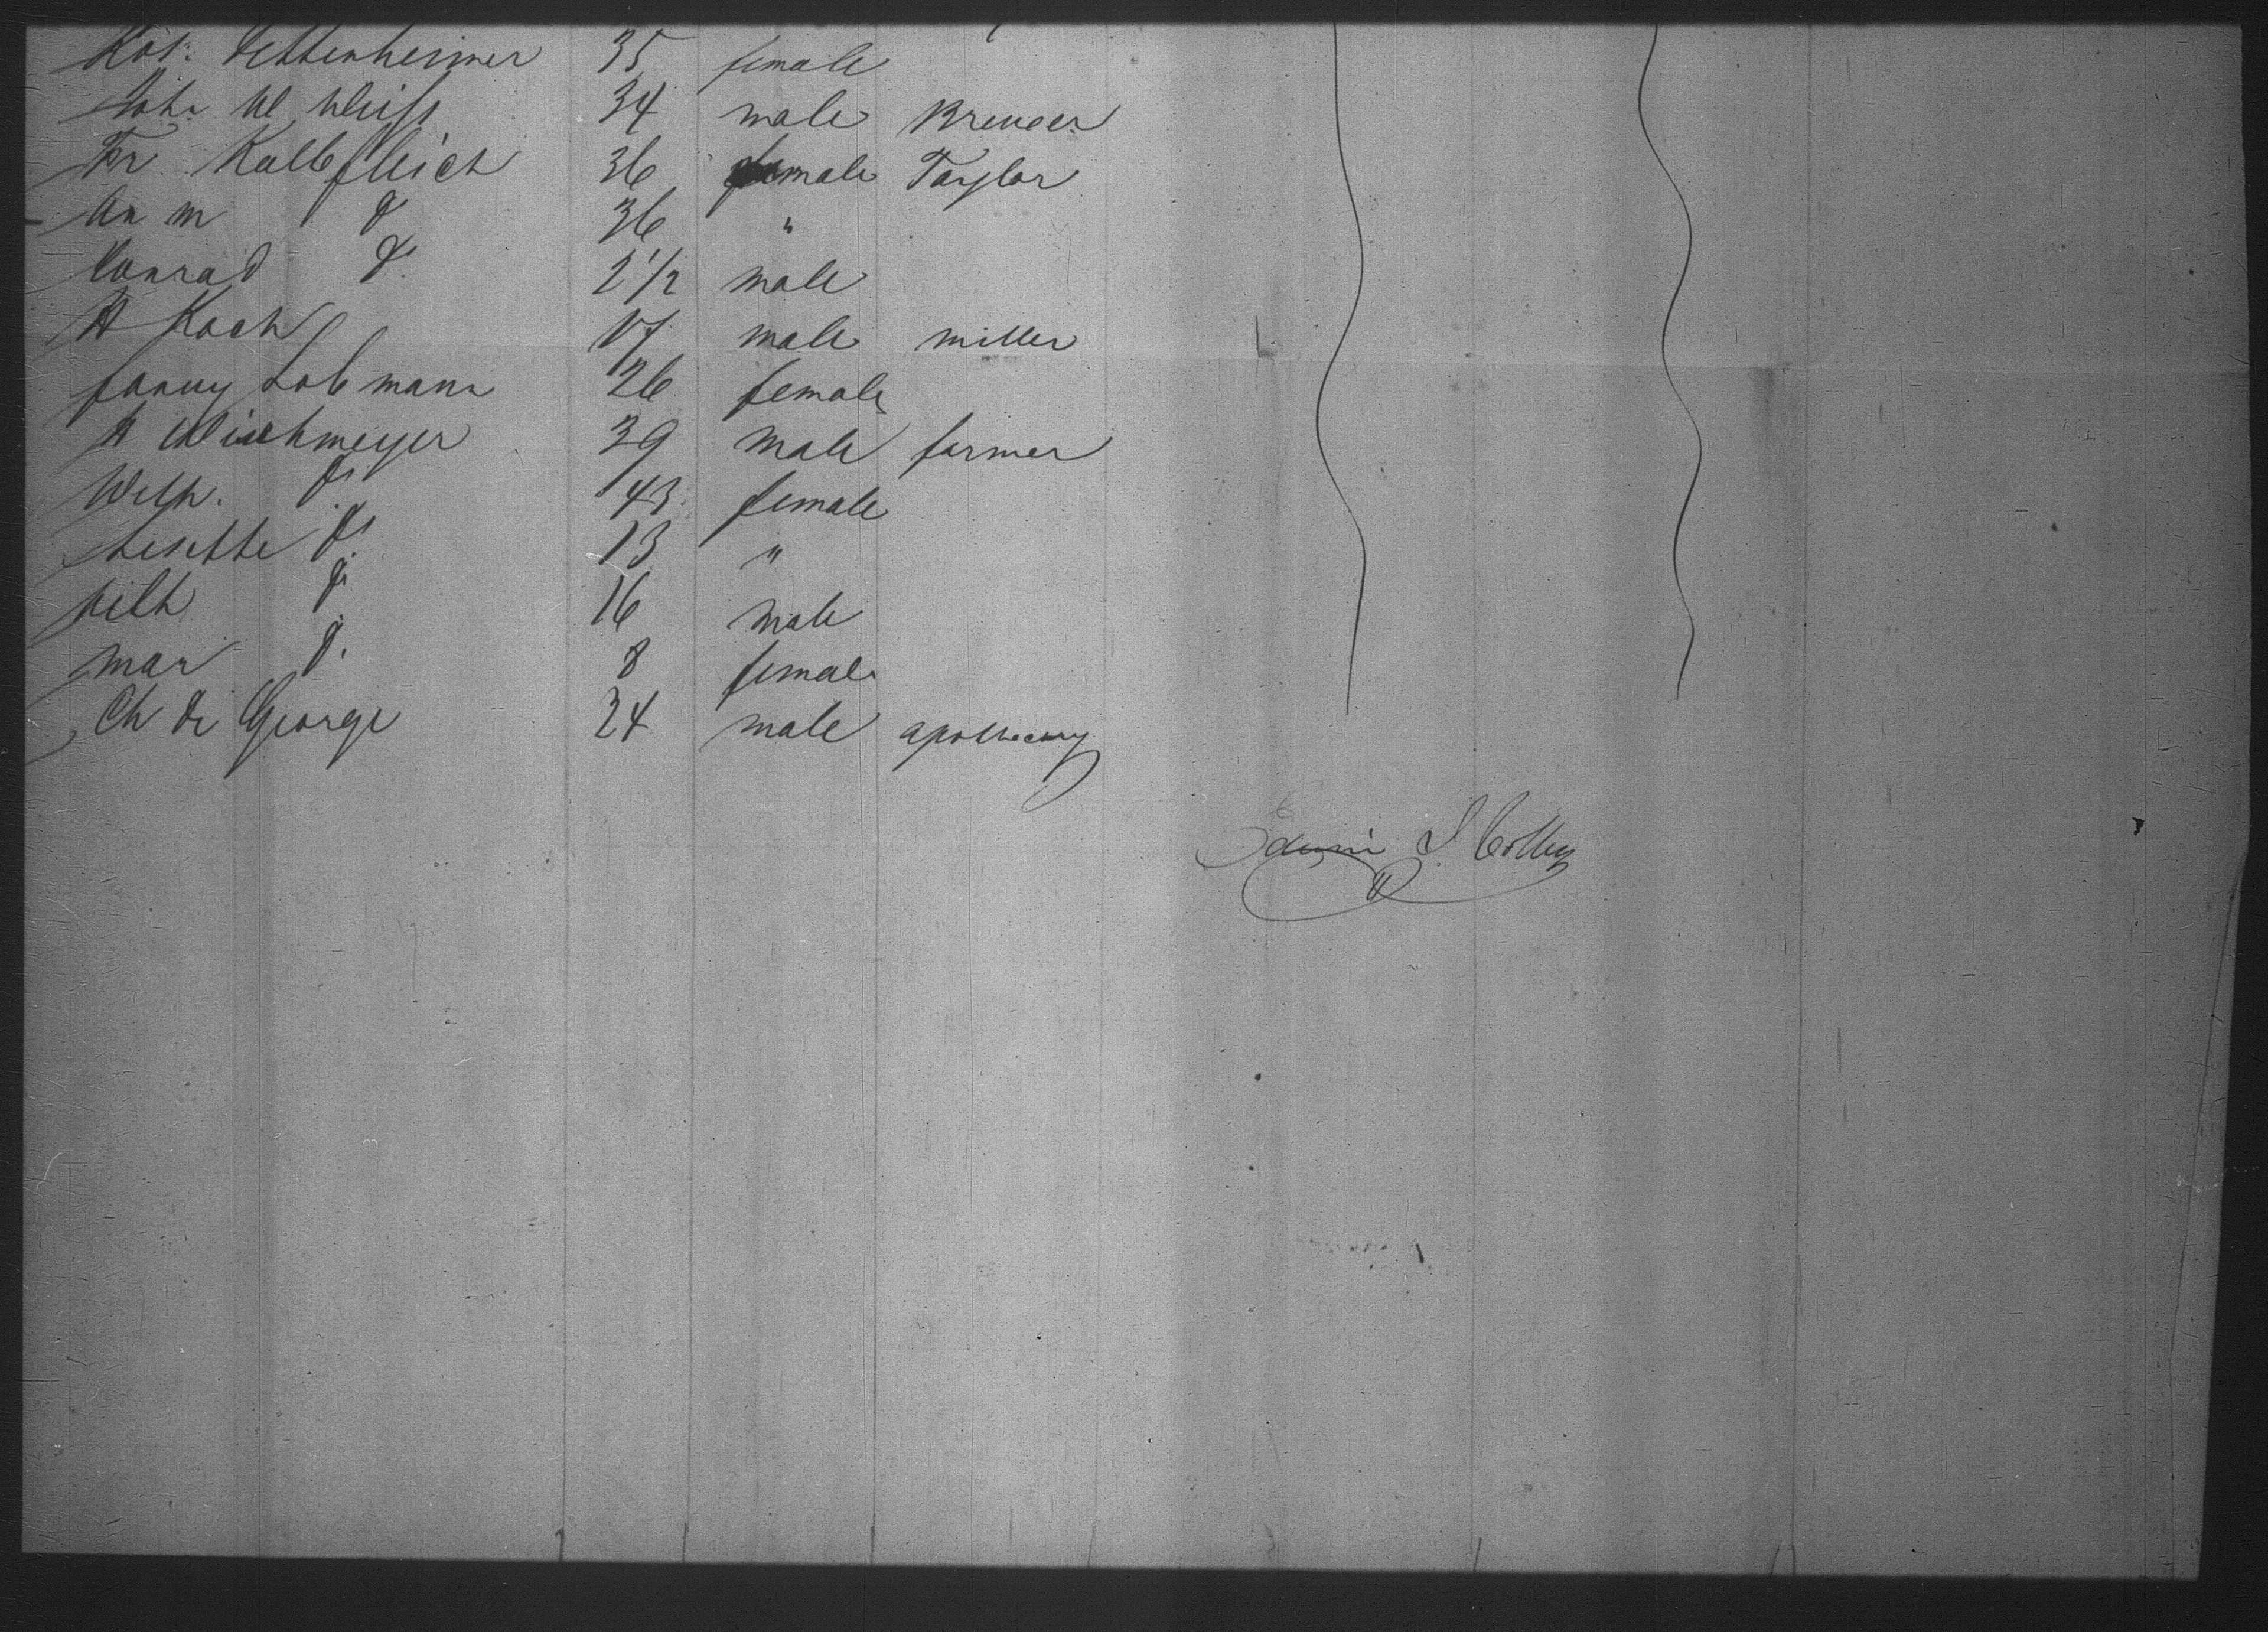 Dettenheimer 35 female
Joh. W Weiss 34 male Brewer
Fr. Kalbfleich 36 female Taylor
An m do 36 "
Conrad do. 2 1/2 male
A Koch 17 male miller
fanny Lobmann 26 female
A Wischmeyer 39 male farmer
Wilh. do 43 female
Lisette do 13 "
do 16 male
mar do. 8 female
Ch de George 24 male apothecary